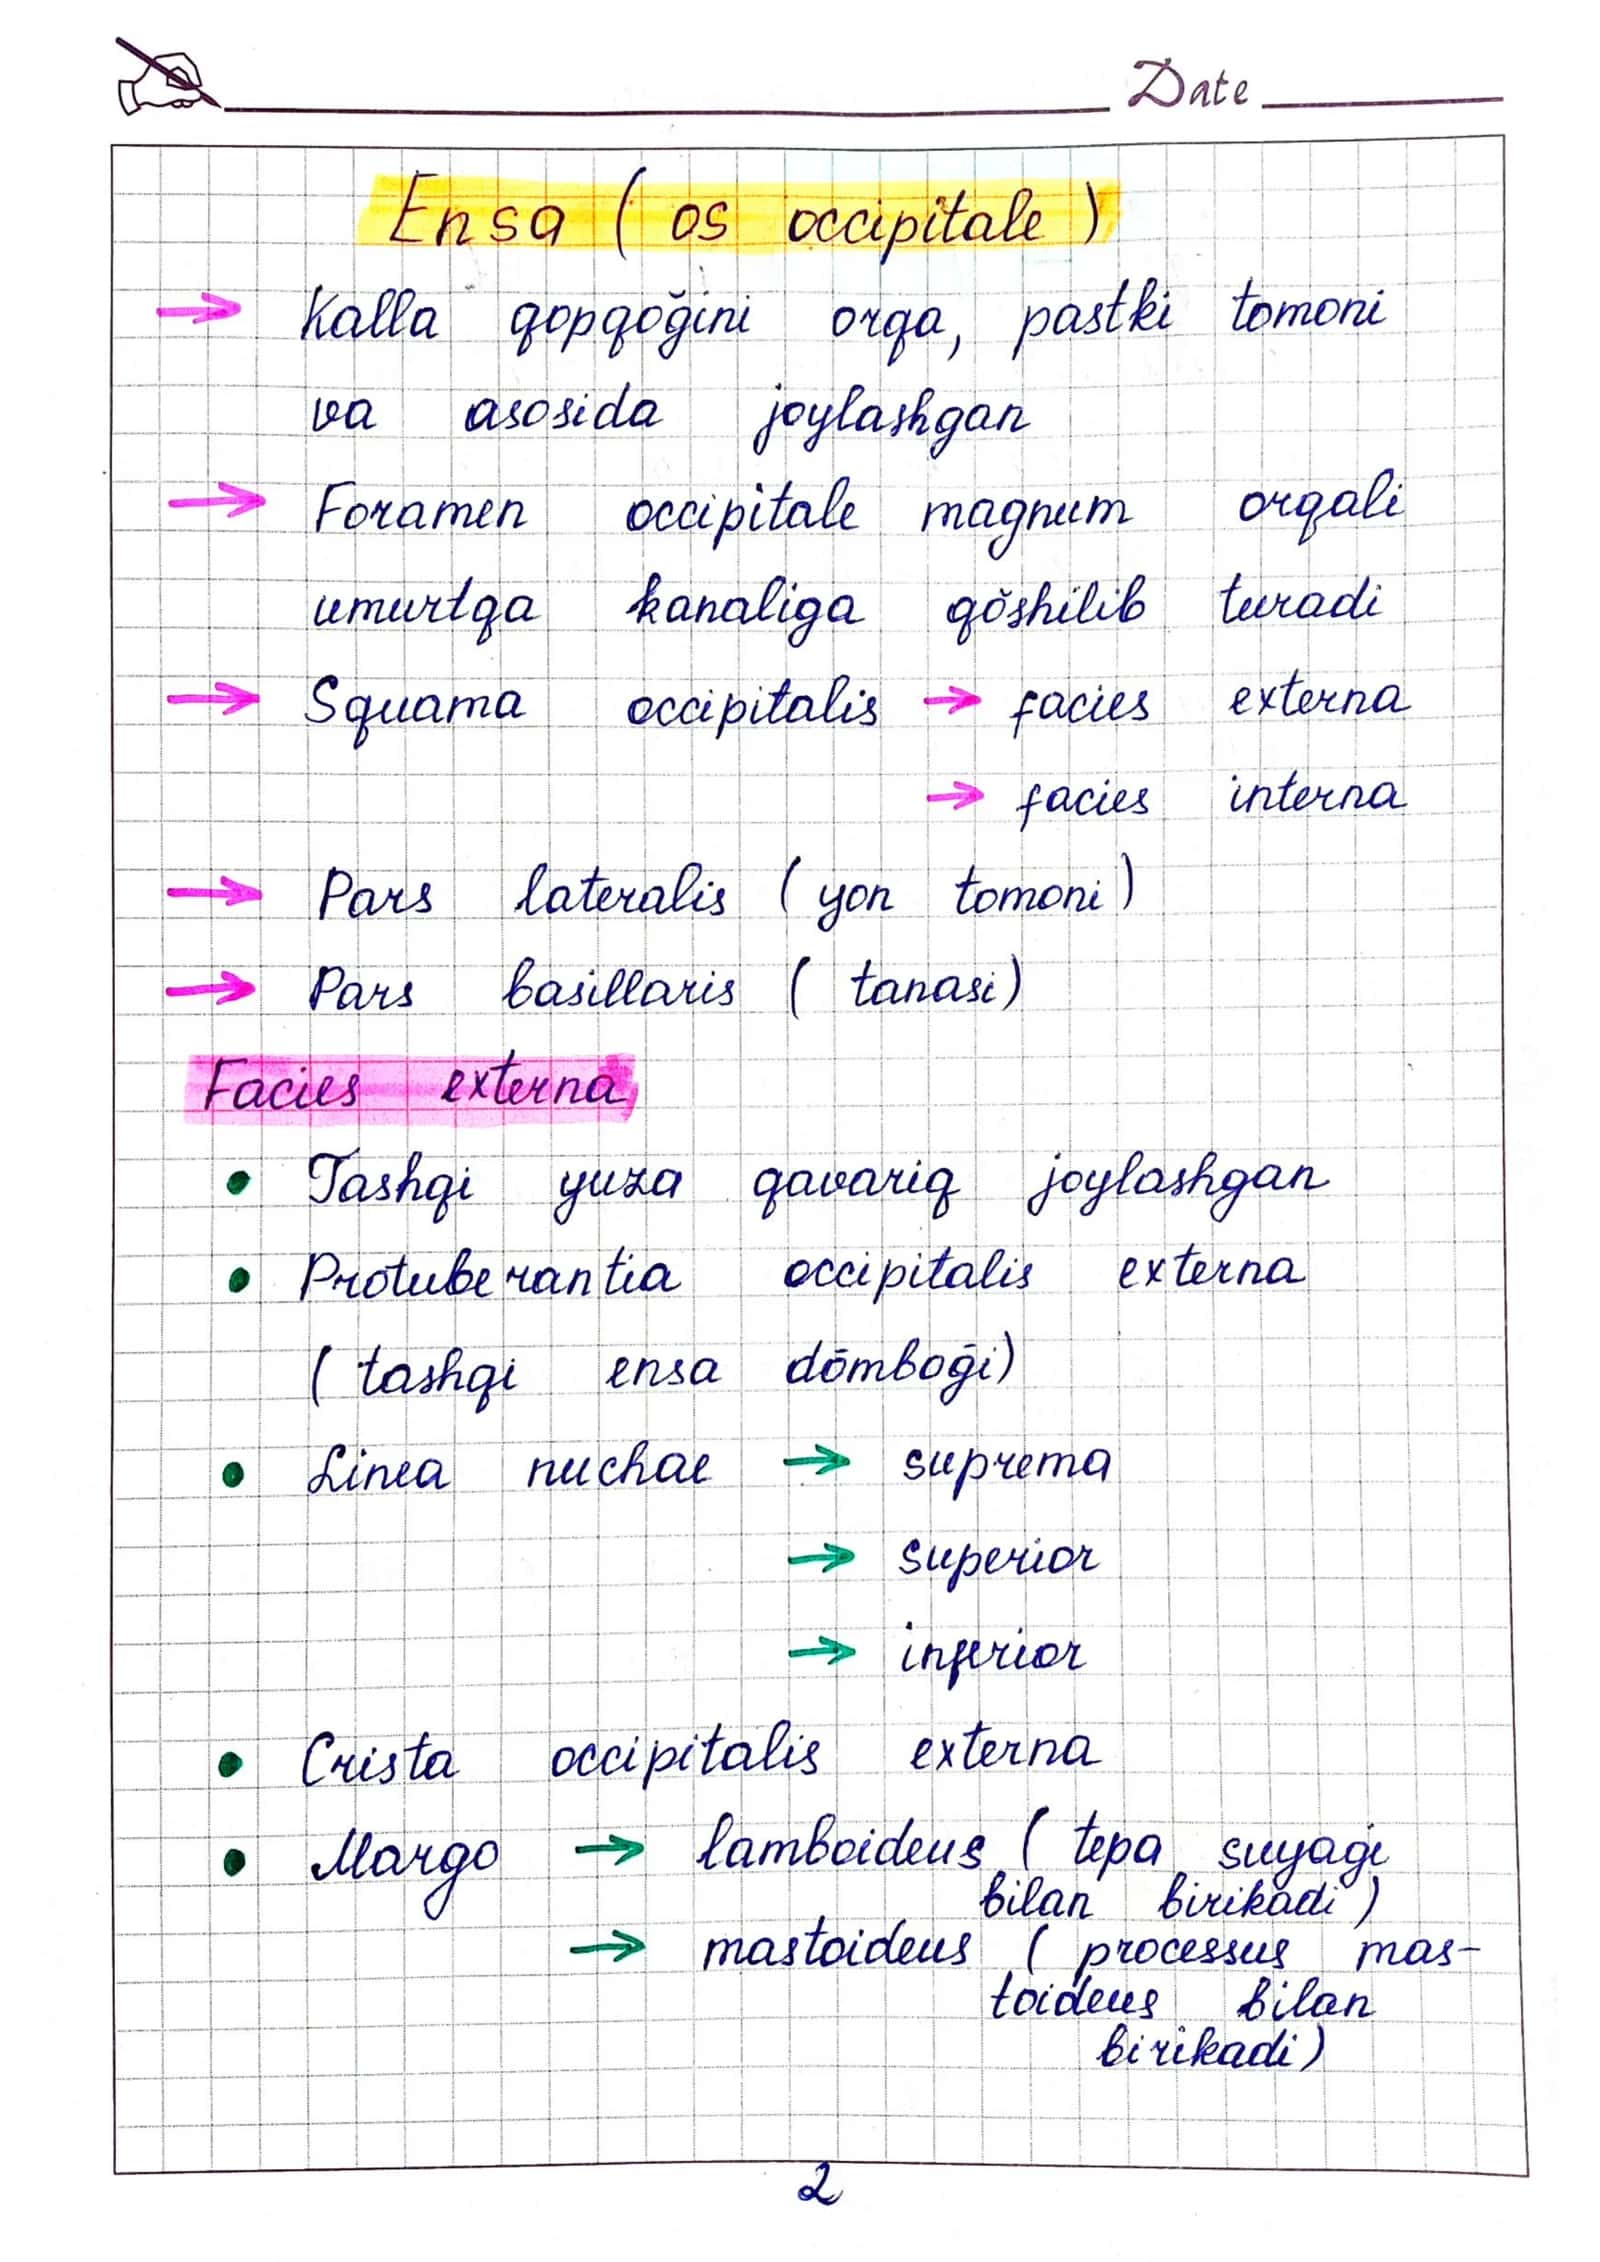 Date
Ensa ( os occipitale )
→ Kalla qopqoğini orqa, pastki tomoni
va asosida joylashgan
→ Foramen occipitale magnum orqali
umurtqa kanaliga qŏshilib turadi
→ Squama occipitalis → facies externa
→ facies interna
→ Pars lateralis ( yon tomoni )
→ Pars basillaris ( tanasi )
Facies externa
• Tashqi yuza qavariq joylashgan
• Protuberantia occipitalis externa
( tashqi ensa dōmboḡi )
• Linea nuchae → suprema
→ superior
→ inferior
• Crista occipitalis externa
• Margo → lamboideus ( tepa suyagi
bilan birikadi )
→ mastoideus ( processus mas-
toideus bilan
birikadi )
2